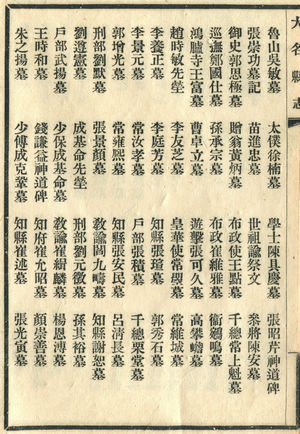 大名縣志
魯山吳敏墓　太僕徐楠墓　學士陳具慶墓　張昭芹神道碑
張崇功墓記　苗進忠墓　世祖諭祭文　參將陳安墓
御史郭思極墓　贈翁黃炳墓　布政使王點墓　千總常上魁墓
巡撫鄭國仕墓　孫承宗墓　布政崔維雅墓　衞鶴鳴墓
鴻臚寺王富墓　曹卓立墓　遊擊張可久墓　高攀蟾墓
趙時敏先塋　李友芝墓　皇華使常覲墓　常維城墓
李養正墓　李庭芳墓　知縣張瑄墓　郭秀石墓
李景元墓　常汝孝墓　戶部張積墓　千總栗堂墓
郭增光墓　常雍熙墓　知縣張安民墓　呂淸長墓
刑部劉默墓　張景顏墓　教諭閻九疇墓　知縣謝恕墓
劉遵憲墓　成基命先塋　刑部劉元徽墓　孫其裕墓
戶部武揚墓　少保成基命墓　教諭崔緝麟墓　楊恩溥墓
王時和墓　錢謙益神道碑　知府崔允昭墓　顏崇善墓
朱之揚墓　少傅成克鞏墓　知縣崔述墓　張光寅墓